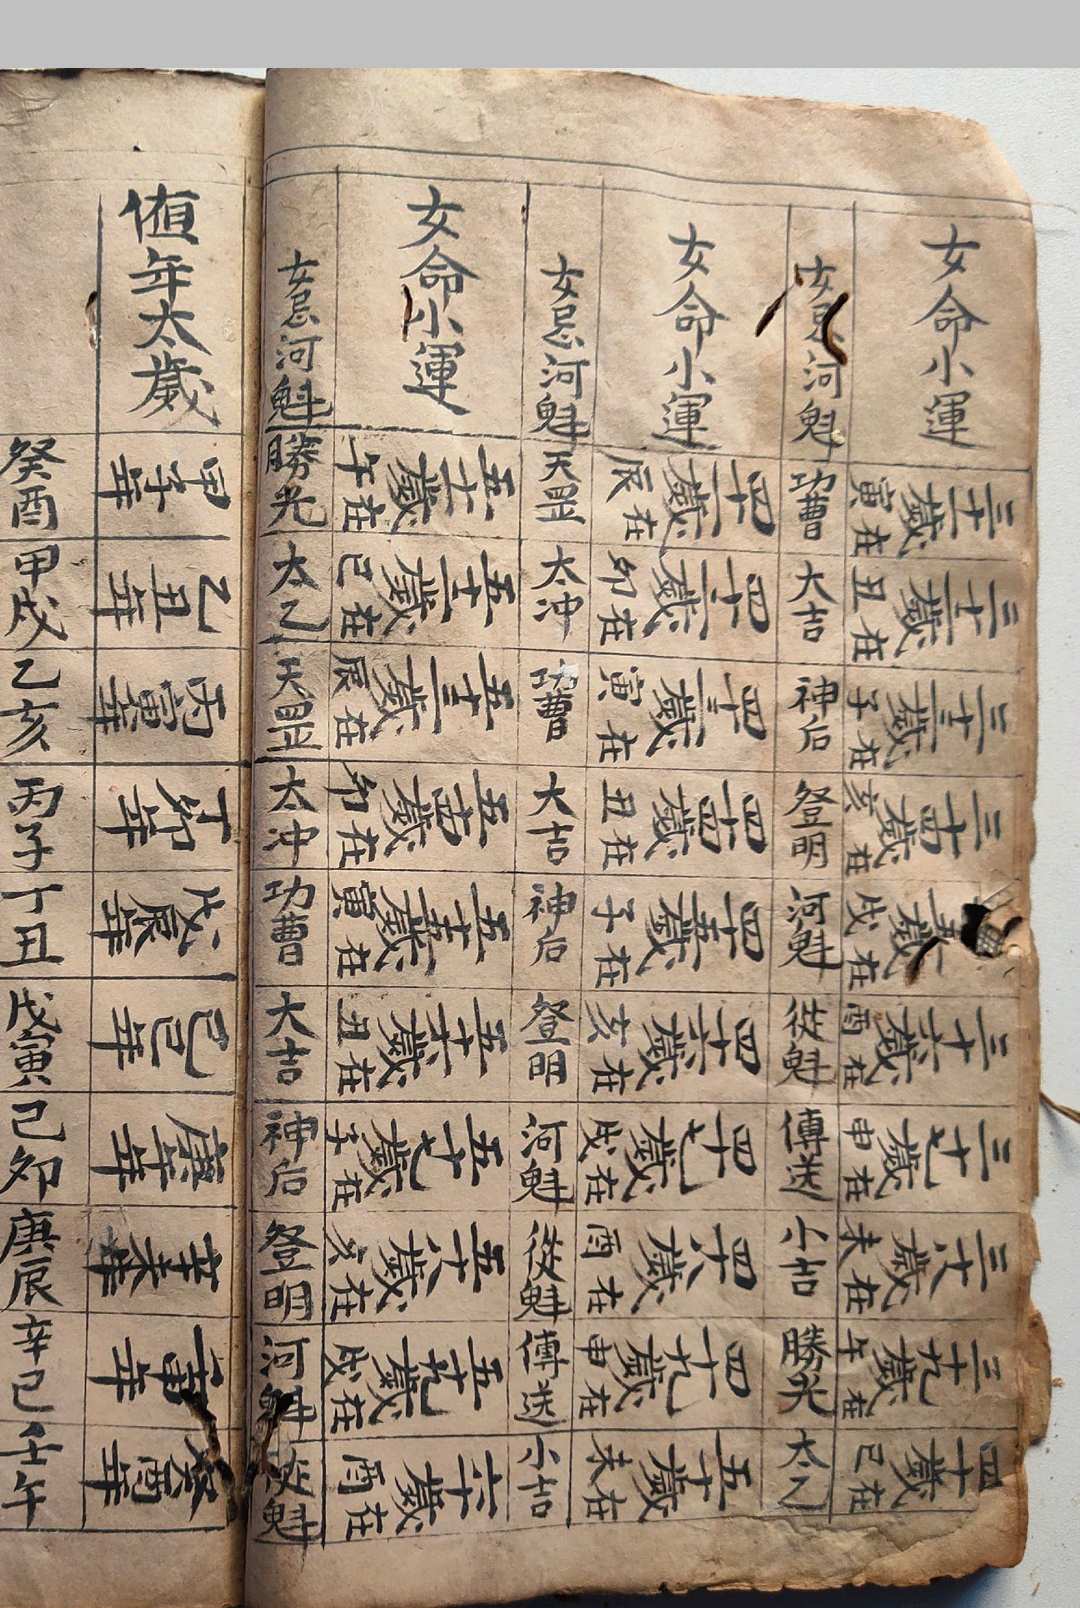 女命小運
三十一歲在寅
三十二歲在丑
三十三歲在子
三十四歲在亥
五歲在戌
三十六歲在酉
三十七歲在申
三十八歲在未
三十九歲在午
四十歲在巳
女忌河魁
功曹
大吉
神后
登明
河魁
從魁
傳送
小吉
勝光
太乙
女命小運
四十一歲在辰
四十二歲在卯
四十三歲在寅
四十四歲在丑
四十五歲在子
四十六歲在亥
四十七歲在戌
四十八歲在酉
四十九歲在申
五十歲在未
女忌河魁
天罡
太冲
功曹
大吉
神后
登明
河魁
從魁
傳送
小吉
女命小運
五十一歲在午
五十二歲在巳
五十三歲在辰
五十四歲在卯
五十五歲在寅
五十六歲在丑
五十七歲在子
五十八歲在亥
五十九歲在戌
六十歲在酉
女忌河魁
勝光
太乙
天罡
太冲
功曹
大吉
神后
登明
河魁
從魁
值年太歲
甲子年
乙丑年
丙寅年
丁卯年
戊辰年
己巳年
庚午年
辛未年
年
年
癸酉
甲戌
乙亥
丙子
丁丑
戊寅
己卯
庚辰
辛巳
壬午